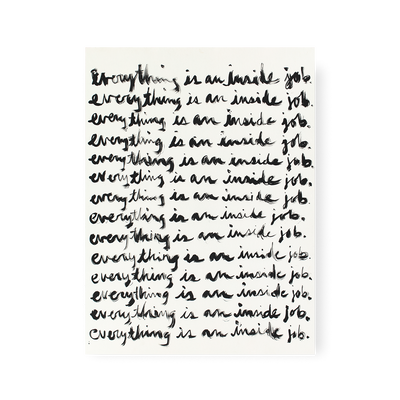 everything is an inside job.
everything is an inside job.
everything is an inside job.
everything is an inside job.
everything is an inside job.
everything is an inside job.
everything is an inside job.
everything is an inside job.
everything is an inside job.
everything is an inside job.
everything is an inside job.
everything is an inside job.
everything is an inside job.
everything is an inside job.